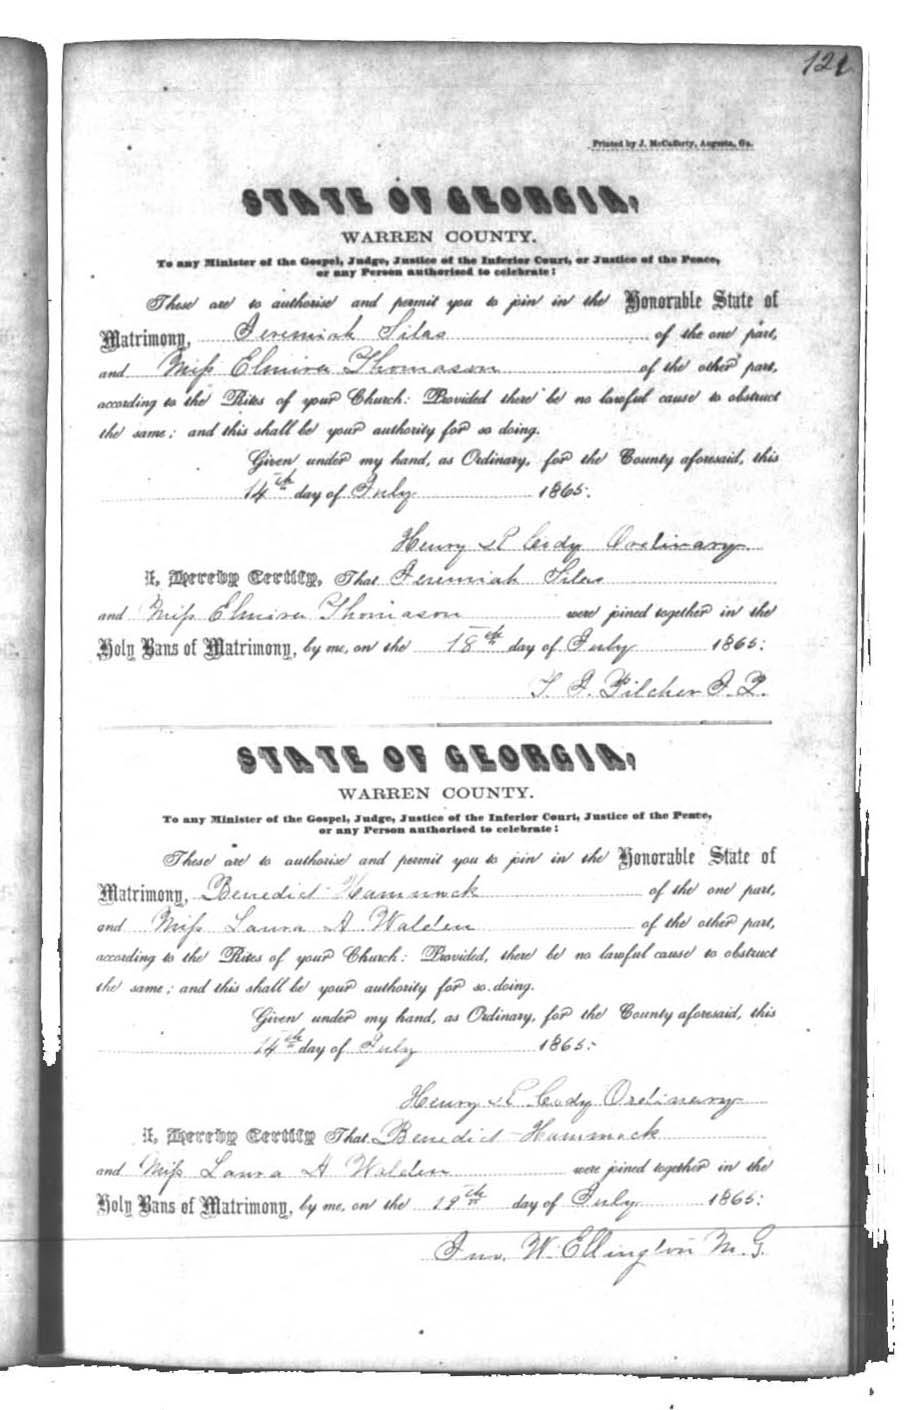 121
Printed by J. McCafferty, Augusta, Ga.
STATE OF GEORGIA,
WARREN COUNTY.
To any Minister of the Gospel, Judge, Justice of the Inferior Court, or Justice of the Peace,
or any Person authorised to celebrate:
These are to authorise and permit you to join in the Honorable State of
Matrimony, Jeremiah Silas of the one part,
and Miss Elmira Thomason of the other part,
according to the Rites of your Church: Provided there be no lawful cause to obstruct
the same; and this shall be your authority for so doing.
Given under my hand, as Ordinary, for the County aforesaid, this
14th day of July 1865.
Henry R Cody Ordinary
I, Hereby Certify, That Jeremiah Silas
and Miss Elmira Thomason were joined together in the
Holy Bans of Matrimony, by me, on the 18th day of July 1865:
T. J. Pilcher J. P.
STATE OF GEORGIA,
WARREN COUNTY.
To any Minister of the Gospel, Judge, Justice of the Inferior Court, Justice of the Peace,
or any Person authorised to celebrate:
These are to authorise and permit you to join in the Honorable State of
Matrimony, Benedict Hammock of the one part,
and Miss Laura A Walden of the other part,
according to the Rites of your Church: Provided, there be no lawful cause to obstruct
the same; and this shall be your authority for so doing.
Given under my hand, as Ordinary, for the County aforesaid, this
14th day of July 1865.
Henry R Cody Ordinary
I, Hereby Certify That Benedict Hammock
and Miss Laura A Walden were joined together in the
Holy Bans of Matrimony, by me, on the 19th day of July 1865:
Jno. W. Ellington M. G.